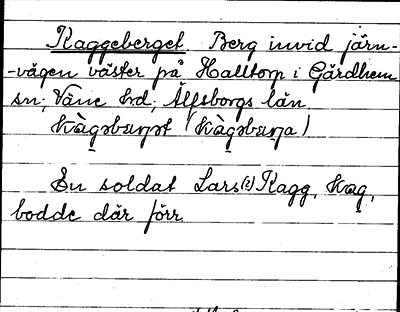 Kaggeberget. Berg invid järn-
-vägen väster på Halltorp i Gärdhem
sn, Väne hd, Älfsborgs län.
Kàgəbærjət (Kàgəbærja)
En soldat Lars(?) Kagg, Kag,
bodde där förr.